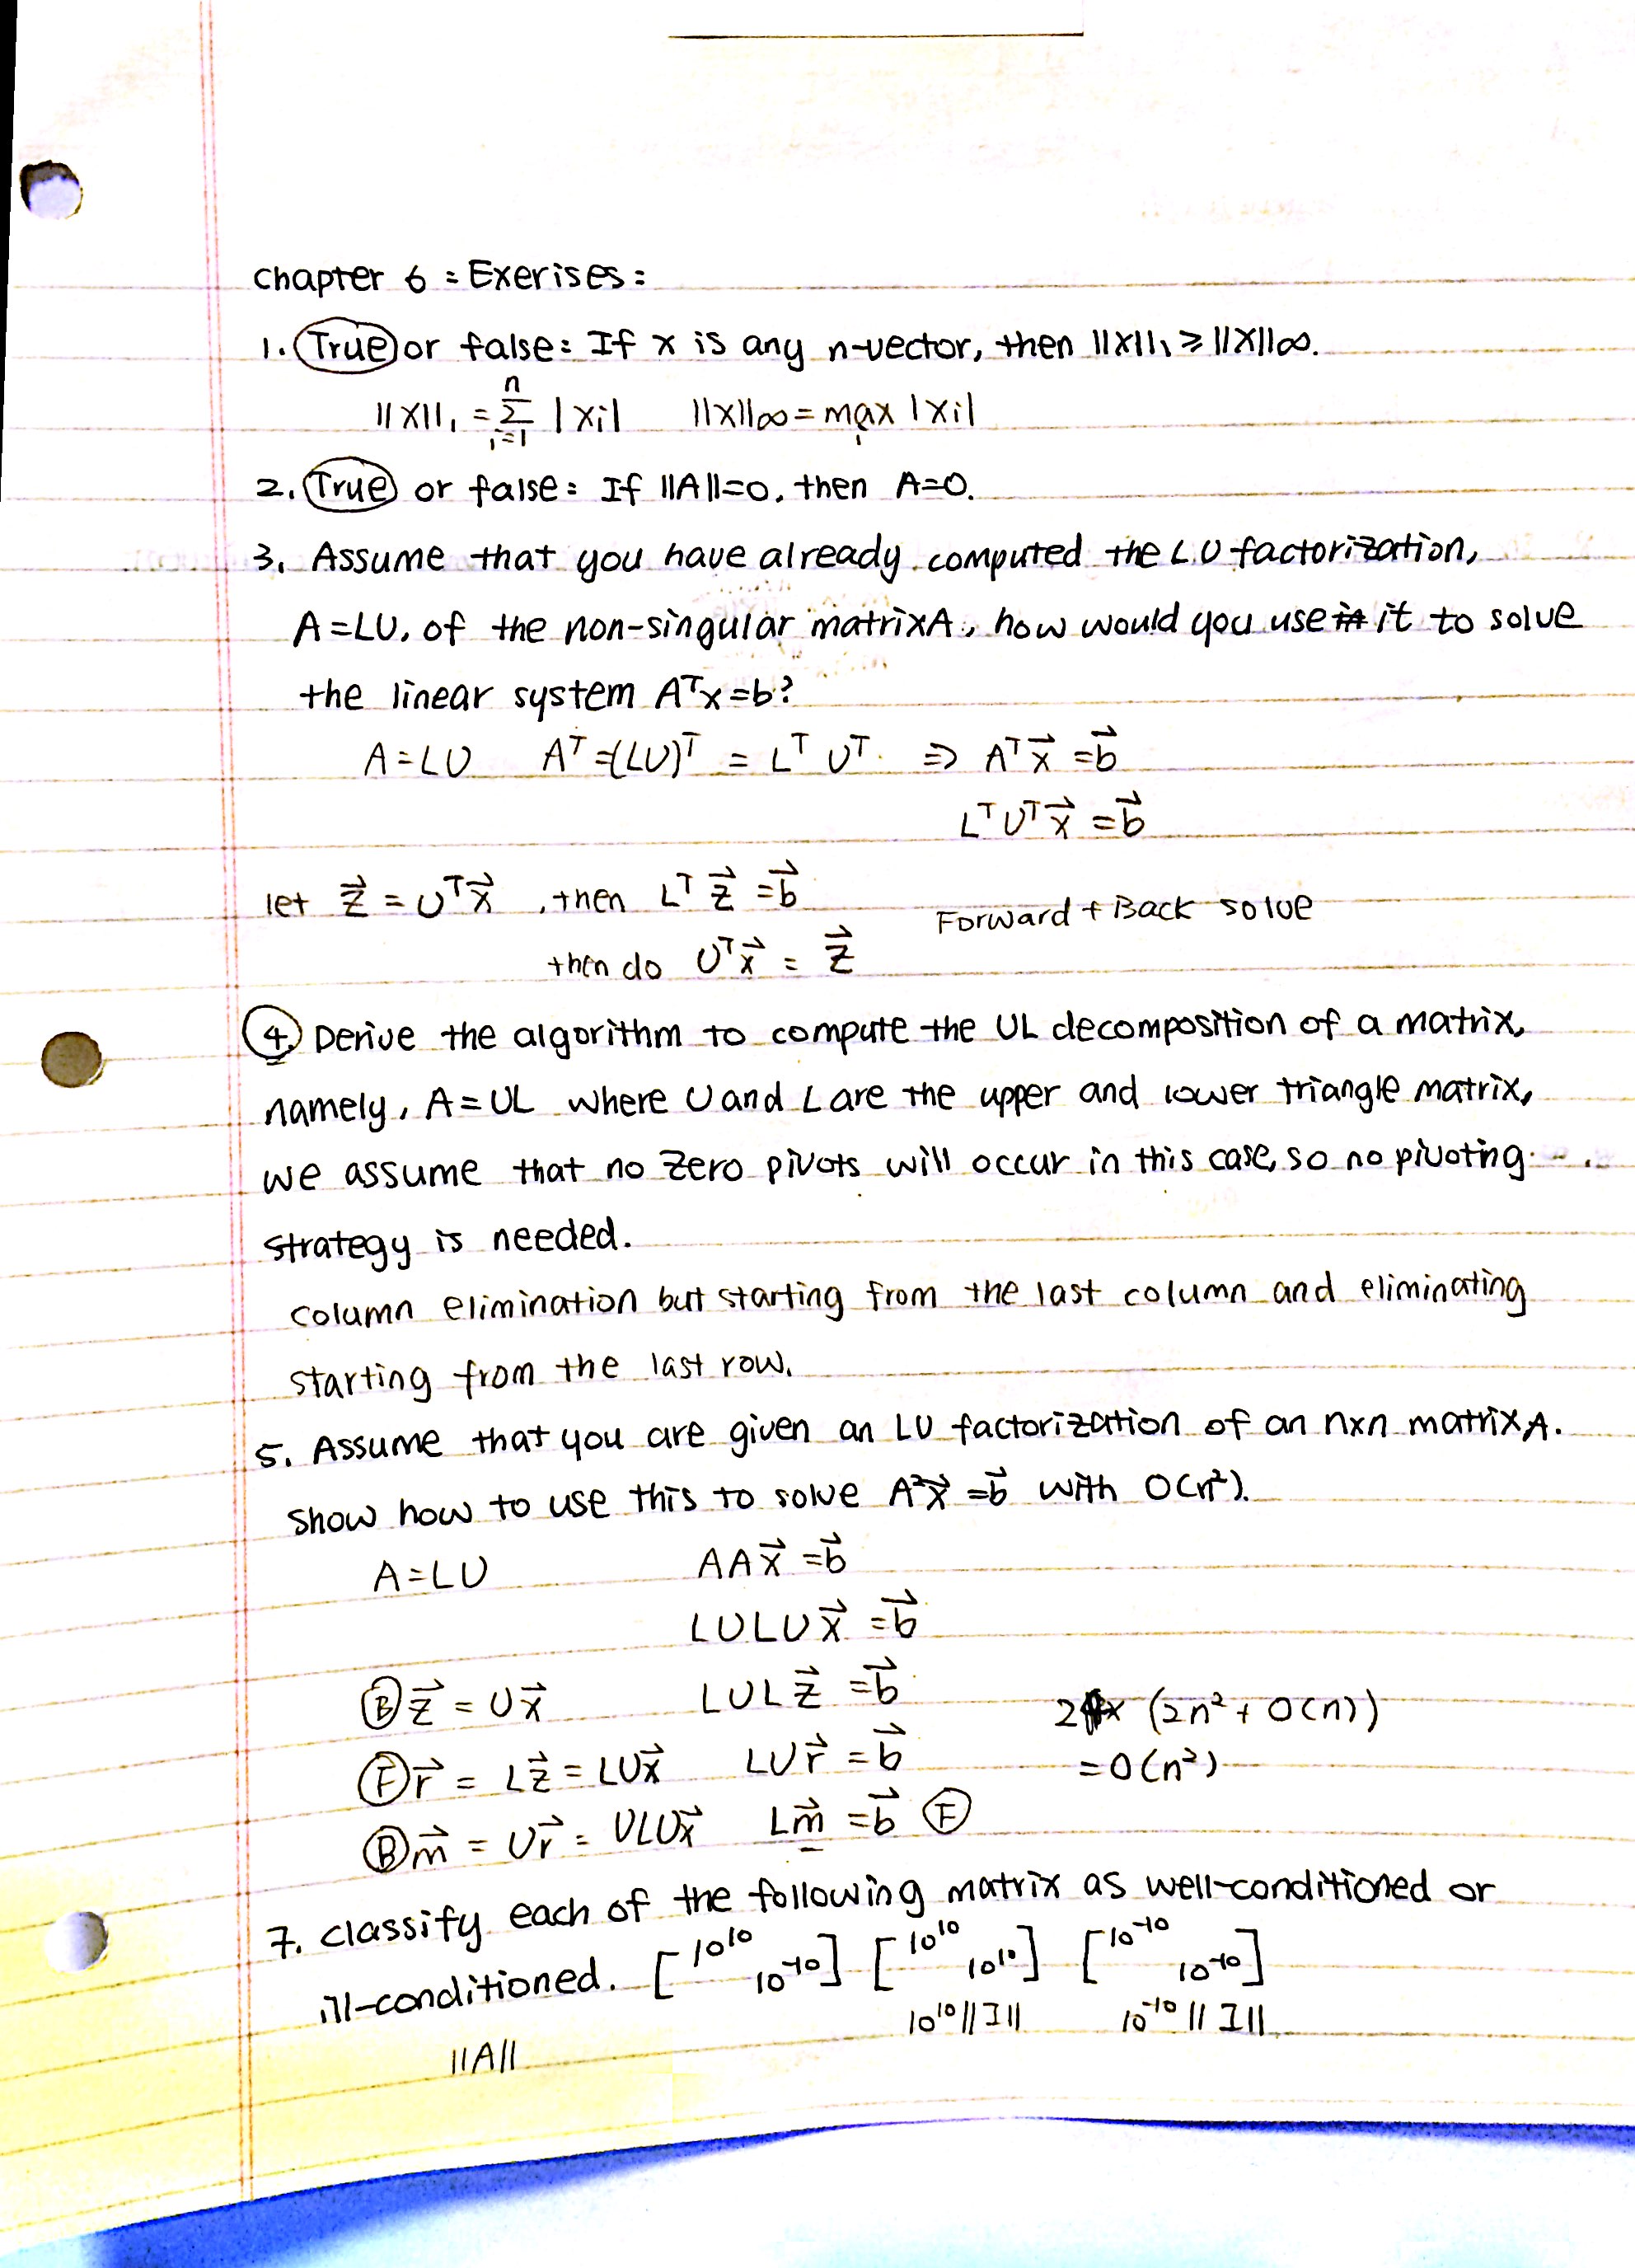 chapter 6 : Exerises :
1. True or false: If x is any n-vector, then ||x||₁ ≥ ||x||∞.
||x||₁ = Σⁿᵢ₌₁ |xi| ||x||∞ = max i |xi|
2. True or false: If ||A||=0, then A=0.
3. Assume that you have already computed the LU factorization,
A=LU, of the non-singular matrix A, how would you use it to solve
the linear system Aᵀx=b?
A=LU Aᵀ=(LU)ᵀ = Lᵀ Uᵀ ⇒ Aᵀx⃗ = b⃗
LᵀUᵀx⃗ = b⃗
let z⃗ = Uᵀx⃗, then Lᵀ z⃗ = b⃗
Forward + Back solve
then do Uᵀx⃗ = z⃗
4. Derive the algorithm to compute the UL decomposition of a matrix,
namely, A=UL where U and L are the upper and lower triangle matrix,
we assume that no zero pivots will occur in this case, so no pivoting
strategy is needed.
column elimination but starting from the last column and eliminating
starting from the last row.
5. Assume that you are given an LU factorization of an nxn matrix A.
show how to use this to solve A²x⃗ = b⃗ with O(n²).
A=LU AAx⃗ = b⃗
LULUx⃗ = b⃗
Ⓑ z⃗ = Ux⃗ LULz⃗ = b⃗ 2x (2n² + O(n))
Ⓕ r⃗ = Lz⃗ = LUx⃗ LUr⃗ = b⃗ = O(n²)
Ⓑ m⃗ = Ur⃗ = ULUx⃗ Lm⃗ = b⃗ Ⓕ
7. classify each of the following matrix as well-conditioned or
ill-conditioned. [10¹⁰ 10⁻¹⁰] [10¹⁰ 10¹⁰] [10⁻¹⁰ 10⁻¹⁰]
10¹⁰||I|| 10⁻¹⁰||I||
||A||